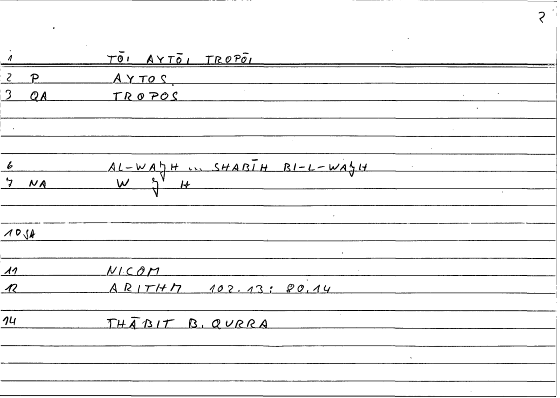 2
1 TŌI AYTŌI TROPŌI
2 P AYTOS
3 QA TROPOS
6 AL-WAǮH ... SHABĪH BI-L-WAǮH
7 NA W Ǯ H
10 SA
11 NICOM
12 ARITHM 102.13: 80.14
14 THĀBIT B. QURRA